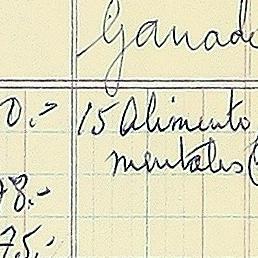 Ganade
0.- 15 Alimento
mentales (
78.-
75.-